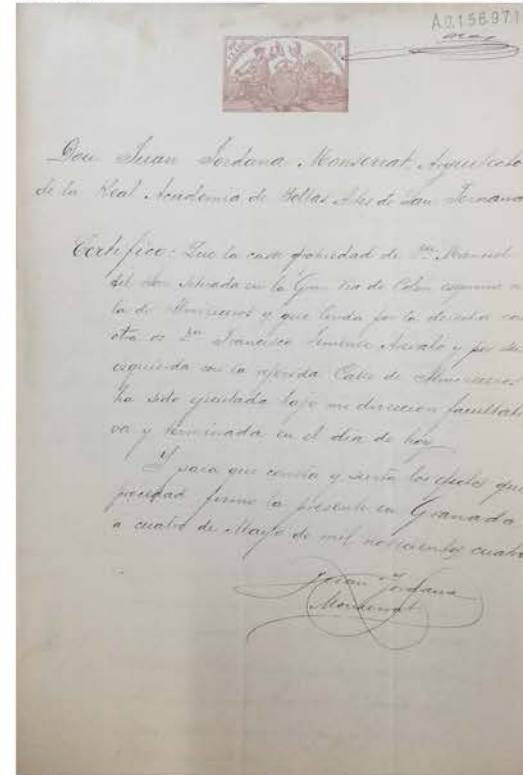 A.2.156.971
Don Juan Jordana Monserrat, Arquitecto
de la Real Academia de Bellas Artes de San Fernand
Certifico: Que la casa propiedad de Dn Manuel
del situada en la Gran Via de Colon esquina a
la de Almireceros y que linda por la derecha con
otra de Dn Francisco Jimenez Arevalo y por su
izquierda con la referida Calle de Almireceros
ha sido ejecutada bajo mi direccion facultati
va y terminada en el dia de hoy
Y para que conste y surta los efectos que
procedan firmo la presente en Granada
a cuatro de Mayo de mil novecientos cuatro
Juan Jordana
Monserrat